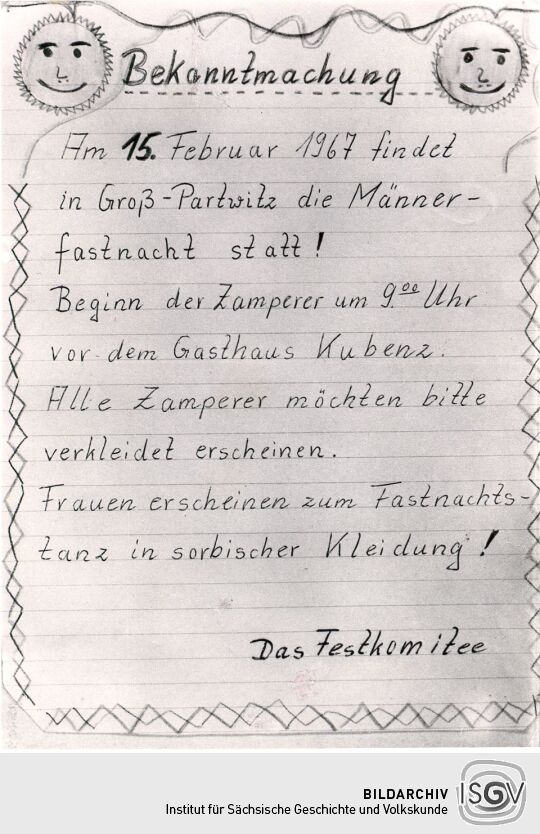 Bekanntmachung
Am 15. Februar 1967 findet
in Groß-Partwitz die Männer-
fastnacht statt!
Beginn der Zamperer um 9.00 Uhr
vor dem Gasthaus Kubenz.
Alle Zamperer möchten bitte
verkleidet erscheinen.
Frauen erscheinen zum Fastnachts-
tanz in sorbischer Kleidung!
Das Festkomitee
BILDARCHIV
Institut für Sächsische Geschichte und Volkskunde
ISGV